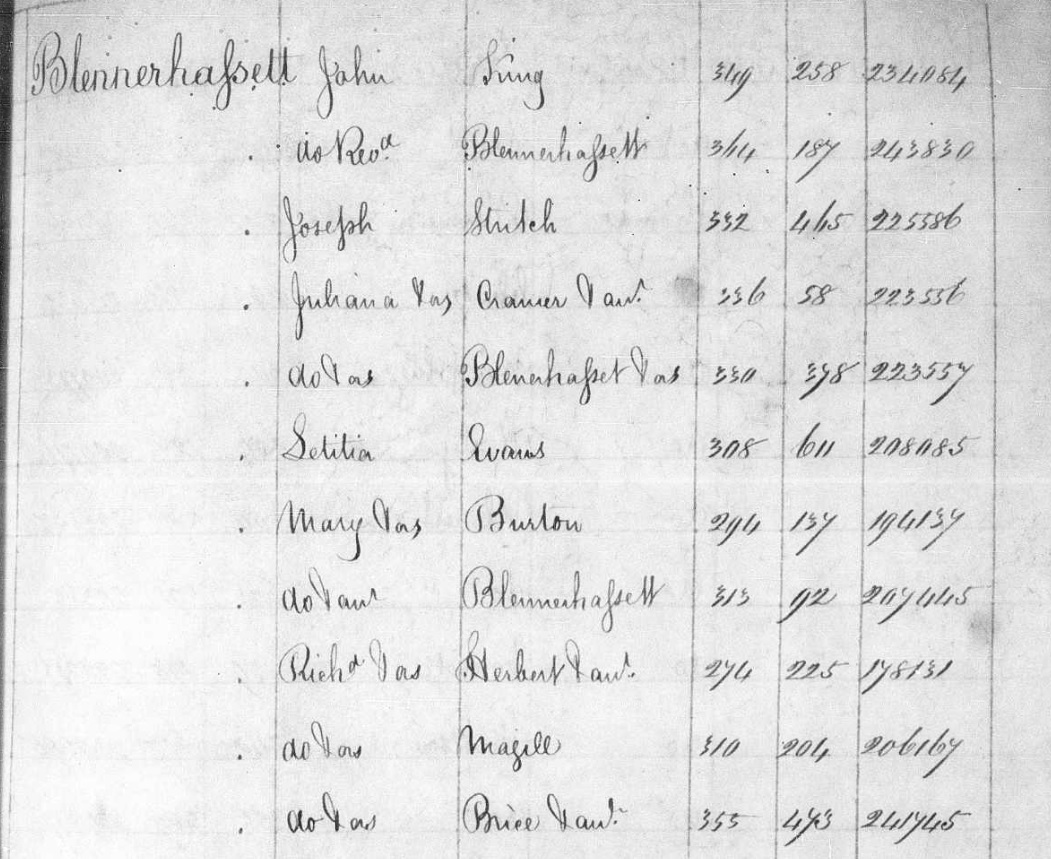 Blennerhassett John King 349 258 234084
. do Revd. Blennerhassett 364 187 243830
. Joseph Stritch 332 465 225386
. Juliana & ors Cramer & anr. 336 58 223556
. do & ors Blenerhasset & ors 330 378 223557
. Letitia Evans 308 611 208085
. Mary & ors Burton 294 137 194137
. do & anr Blennerhassett 313 92 207445
. Richd & ors Herbert & anr. 274 225 178131
. do & ors Magill 310 204 206167
. do & ors Brice & anr. 355 473 241745